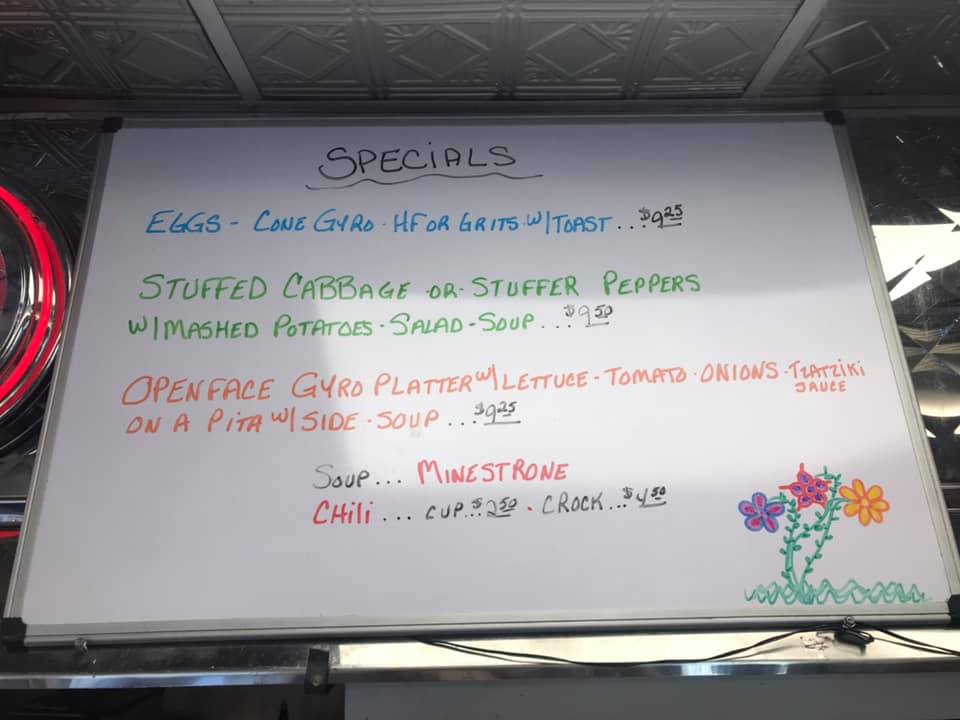 SPECIALS
EGGS - CONE GYRO · HF OR GRITS · W/ TOAST ... $9.25
STUFFED CABBAGE - OR - STUFFER PEPPERS
W/ MASHED POTATOES · SALAD - SOUP ... $9.50
OPENFACE GYRO PLATTER W/ LETTUCE - TOMATO · ONIONS · TZATZIKI SAUCE
ON A PITA W/ SIDE · SOUP ... $9.25
SOUP ... MINESTRONE
CHILI ... CUP ... $2.50 · CROCK ... $4.50